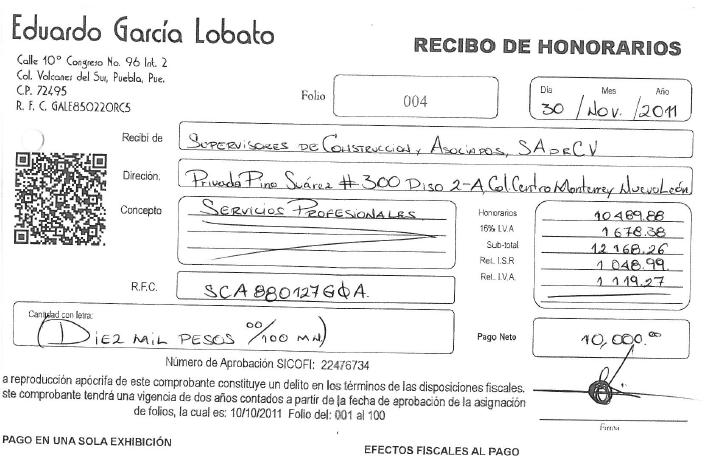 Eduardo García Lobato
RECIBO DE HONORARIOS
Calle 10° Congreso No. 96 Int. 2
Col. Volcanes del Sur, Puebla, Pue.
C.P. 72495
R. F. C. GALE850220RC5
Folio 004
Día Mes Año
30 / Nov. / 2011
Recibi de SUPERVISORES DE CONSTRUCCION y ASOCIADOS, SA DE CV
Direción. Privada Pino Suárez # 300 Piso 2-A, Col. Centro Monterrey Nuevo León
Concepto SERVICIOS PROFESIONALES
Honorarios 10 489.88
16% I.V.A 1 678.38
Sub-total 12 168.26
Ret. I.S.R 1 048.99
Ret. I.V.A. 1 119.27
R.F.C. SCA880127GQA.
Cantidad con letra:
(DIEZ MIL PESOS 00/100 MN)
Pago Neto 10,000.00
Número de Aprobación SICOFI: 22476734
a reproducción apócrifa de este comprobante constituye un delito en los términos de las disposiciones fiscales.
ste comprobante tendrá una vigencia de dos años contados a partir de la fecha de aprobación de la asignación
de folios, la cual es: 10/10/2011 Folio del: 001 al 100
Firma
PAGO EN UNA SOLA EXHIBICIÓN
EFECTOS FISCALES AL PAGO